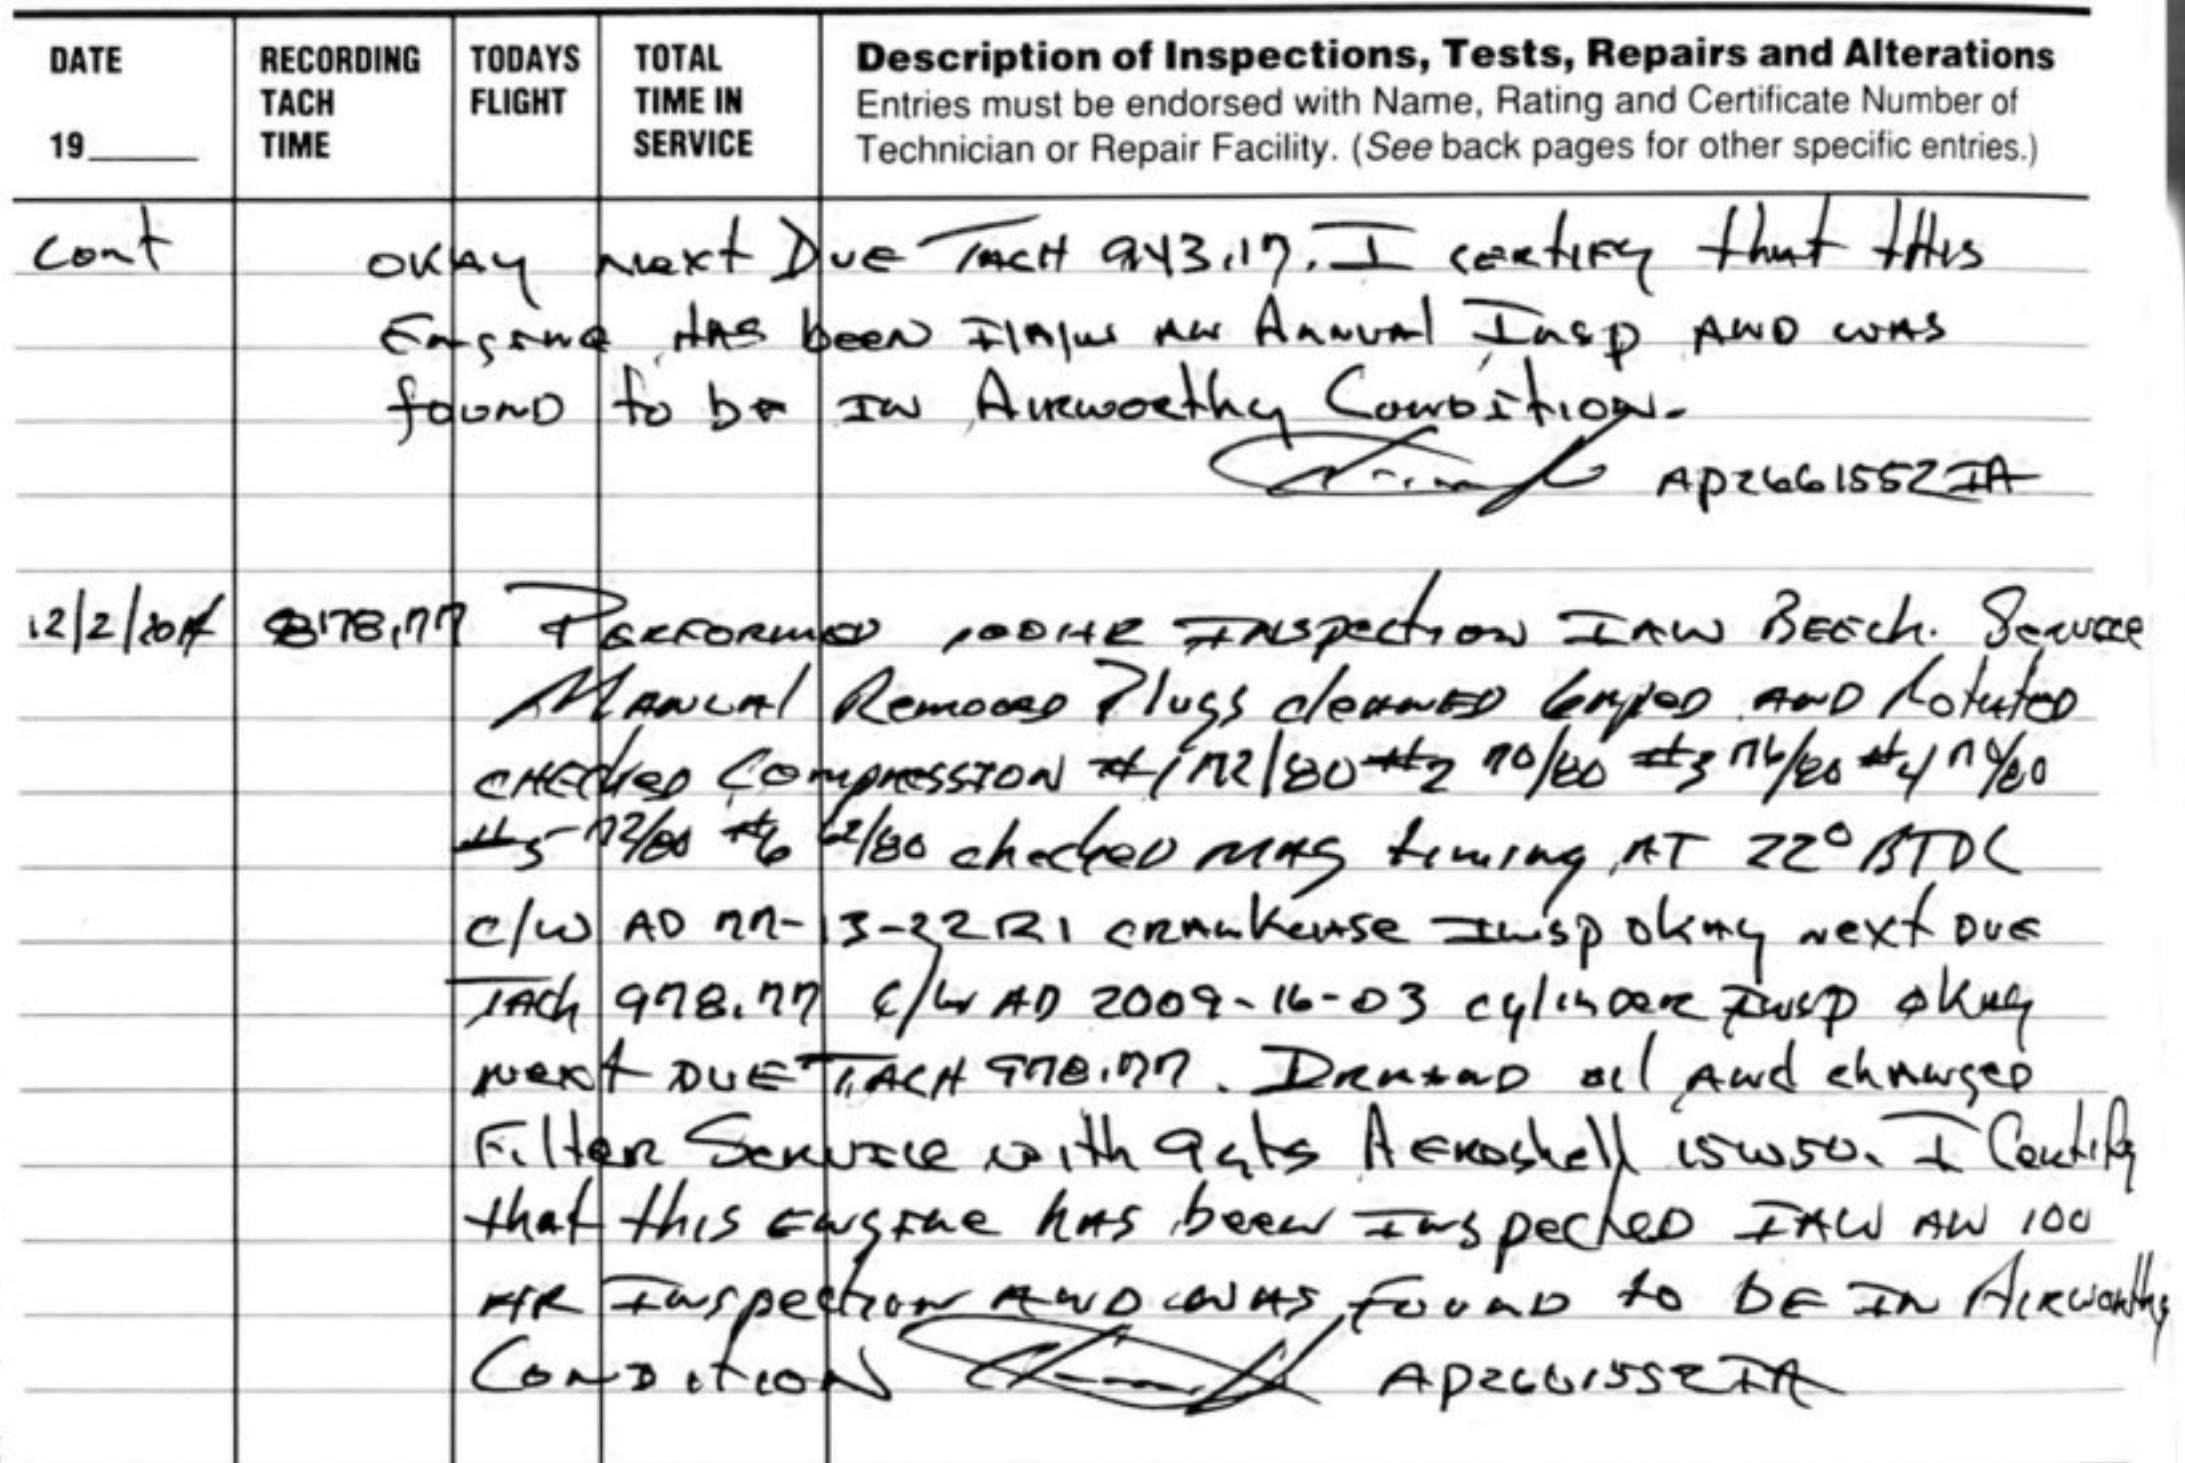 DATE RECORDING TODAYS TOTAL Description of Inspections, Tests, Repairs and Alterations
TACH FLIGHT TIME IN Entries must be endorsed with Name, Rating and Certificate Number of
19____ TIME SERVICE Technician or Repair Facility. (See back pages for other specific entries.)
Cont OKAY Next Due TACH 943.17. I certify that this
Engine HAS been I/A/W AN Annual Insp AND WAS
found to be IN Airworthy Condition.
AP2661552IA
12/2/2014 878.77 PERFORMED 100HR INspection IAW BEECH. Service
MANUAL Removed Plugs cleaned Gaped AND Rotated
CHECKED Compression #1 72/80 #2 70/80 #3 76/80 #4 74/80
#5 72/80 #6 62/80 checked MAG timing AT 22° BTDC
C/W AD 77-13-22R1 crankcase Insp okay next DUE
TACH 978.77 C/W AD 2009-16-03 cylinder Insp okay
Next DUE TACH 978.77. Drained oil and changed
Filter Service with 9qts Aeroshell 15w50. I Certify
that this engine has been Inspected IAW AN 100
HR Inspection AND WAS FOUND to BE IN Airworthy
CONDITION AP2661552IA